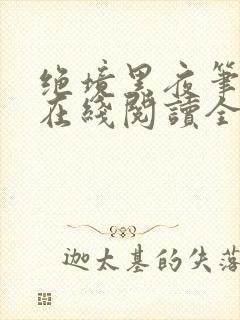 绝境黑夜筆
在綫閱讀全
迦太基的失落